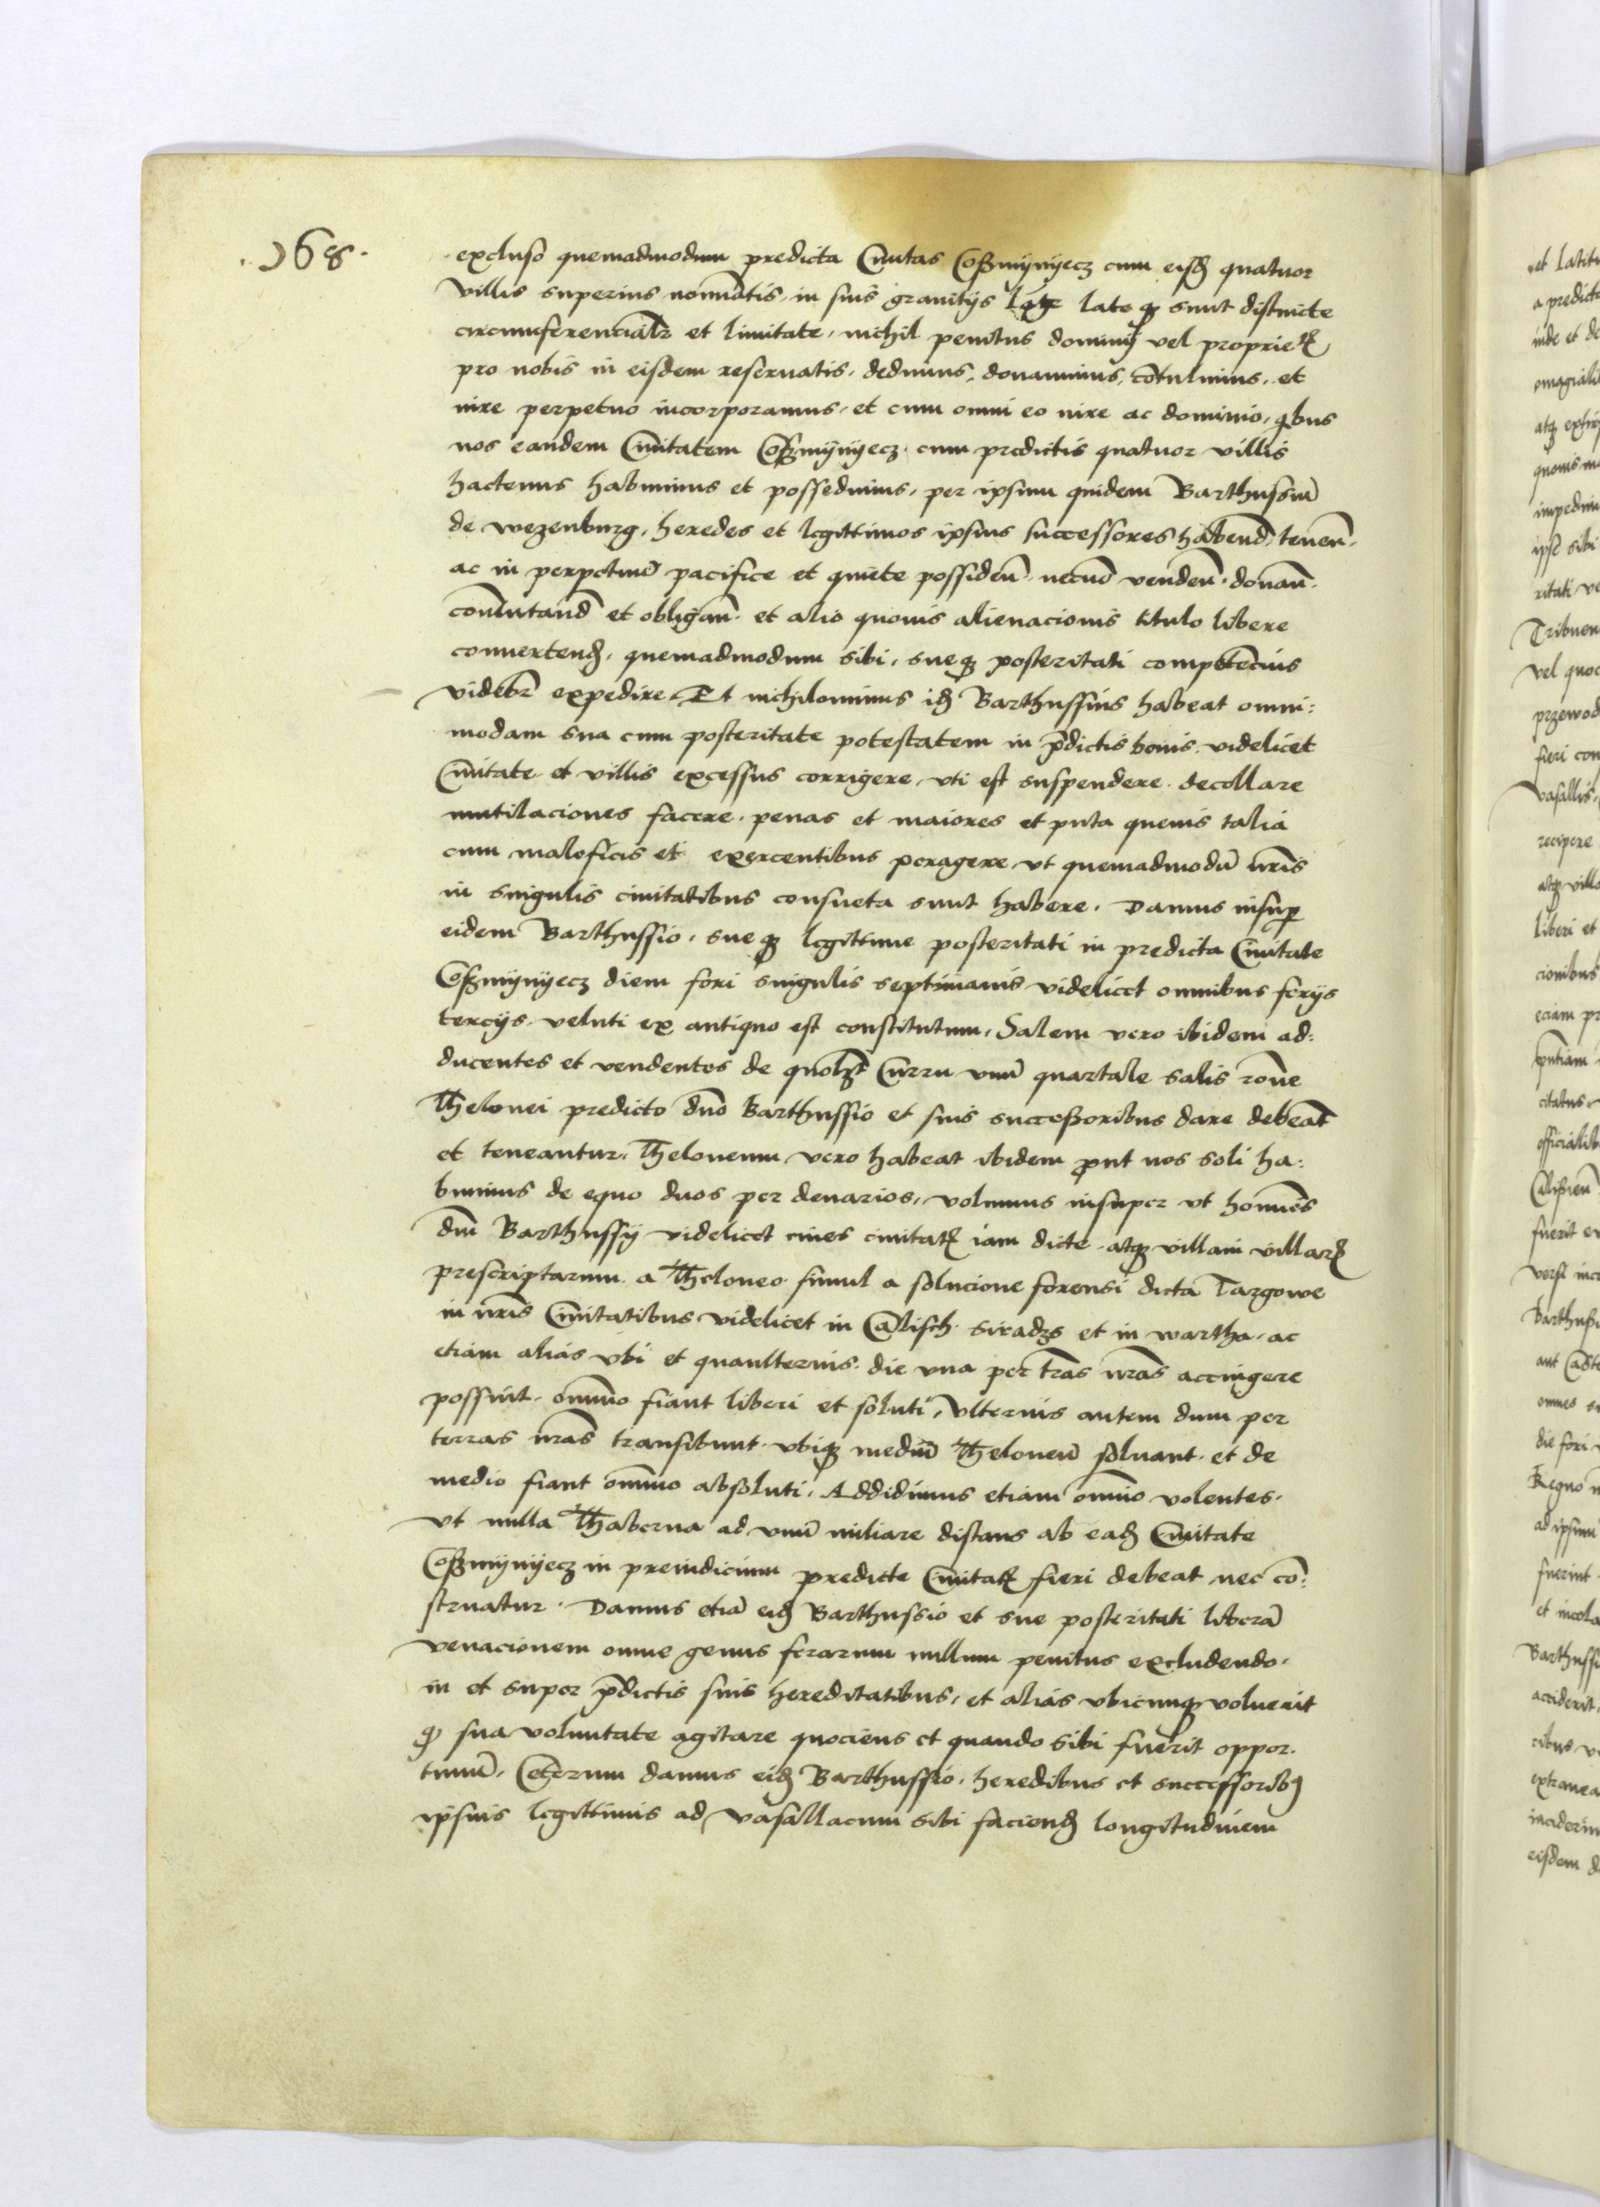 .368.
excluso quemadmodum predicta Ciuitas Coßmÿnÿecz cum eisdem quatuor
villis superius nominatis, in suis granitijs late que sunt distincte
circumferencialr et limitate, nichil penitus dominij vel proprietatis
pro nobis in eisdem reseruatis, dedimus, donauimus, contulimus, et
iure perpetuo incorporamus, et cum omni eo iure ac dominio, quibus
nos eandem Ciuitatem Coßmÿnÿecz cum predictis quatuor villis
hactenus habuimus et possedimus, per ipsum quidem Barthussium
de Wezenburg, heredes et legittimos ipsius successores habend, tenen̄,
ac in perpetuum pacifice et quiete possiden̄, necnon venden̄, donan̄,
commutand et obligan̄, et alio quouis alienacionis titulo libere
conuertend, quemadmodum sibi, sueque posteritati competencius
videbitur expedire, Et nichilominus idem Barthussius habeat omni:
modam sua cum posteritate potestatem in p̄dictis bonis, videlicet
Ciuitate et villis excessus corrigere, vti est suspendere, decollare
mutilaciones facere, penas et maiores et puta queuis talia
cum maleficis et exercentibus peragere, vt quemadmodū nr̄is
in singulis ciuitatibus consueta sunt habere. Damus insuper
eidem Barthussio, sueque legittime posteritati in predicta Ciuitate
Coßmÿnÿecz diem fori singulis septimanis videlicet omnibus ferijs
tercijs, veluti ex antiquo est constitutum, Salem vero ibidem ad:
ducentes et vendentes de quolibet Curru vnū quartale salis rōne
Thelonei predicto dn̄o Barthussio et suis successoribus dare debeāt
et teneantur, Theloneum vero habeat ibidem prout nos soli ha:
buimus de equo duos per denarios, volumus insuper vt homines
dn̄i Barthussij videlicet ciues ciuitatis iam dicte, atque villani villarum
prescriptarum a Theloneo simul a solucione forensi dicta Targowe
in nr̄is Ciuitatibus videlicet in Calisch, Siradzs et in wartha, ac
etiam alias vbi et quaulterius die vna per tr̄as nr̄as accingere
possint, omnino fiant liberi et soluti, Vlterius autem dum per
terras nr̄as transibunt, vbique mediū Theloneū soluant, et de
medio fiant omnino absoluti, Addidimus etiam omnino volentes,
vt nulla Thaberna ad vnū miliare distans ab eadem Ciuitate
Coßmÿnÿecz in preiudicium predicte Ciuitatis fieri debeat nec cō:
struatur. Damus etiā eidem Barthussio et sue posteritati liberā
venacionem omne genus ferarum nullum penitus excludendo,
in et super p̄dictis suis hereditatibus, et alias vbicunque voluerit
sua voluntate agitare quociens et quando sibi fuerit oppor:
tunū, Ceterum damus eidem Barthussio, heredibus et successoribus
ipsius legittimis ad vasallacum sibi faciend longitudinem